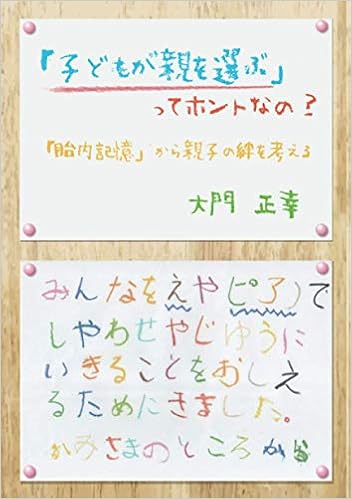 「子どもが親を選ぶ」
ってホントなの?
「胎内記憶」から親子の絆を考える
大門 正幸
みんなをえやピアノで
しやわせやじゆうに
いきることをおしえ
るためにきました。
かみさまのところから